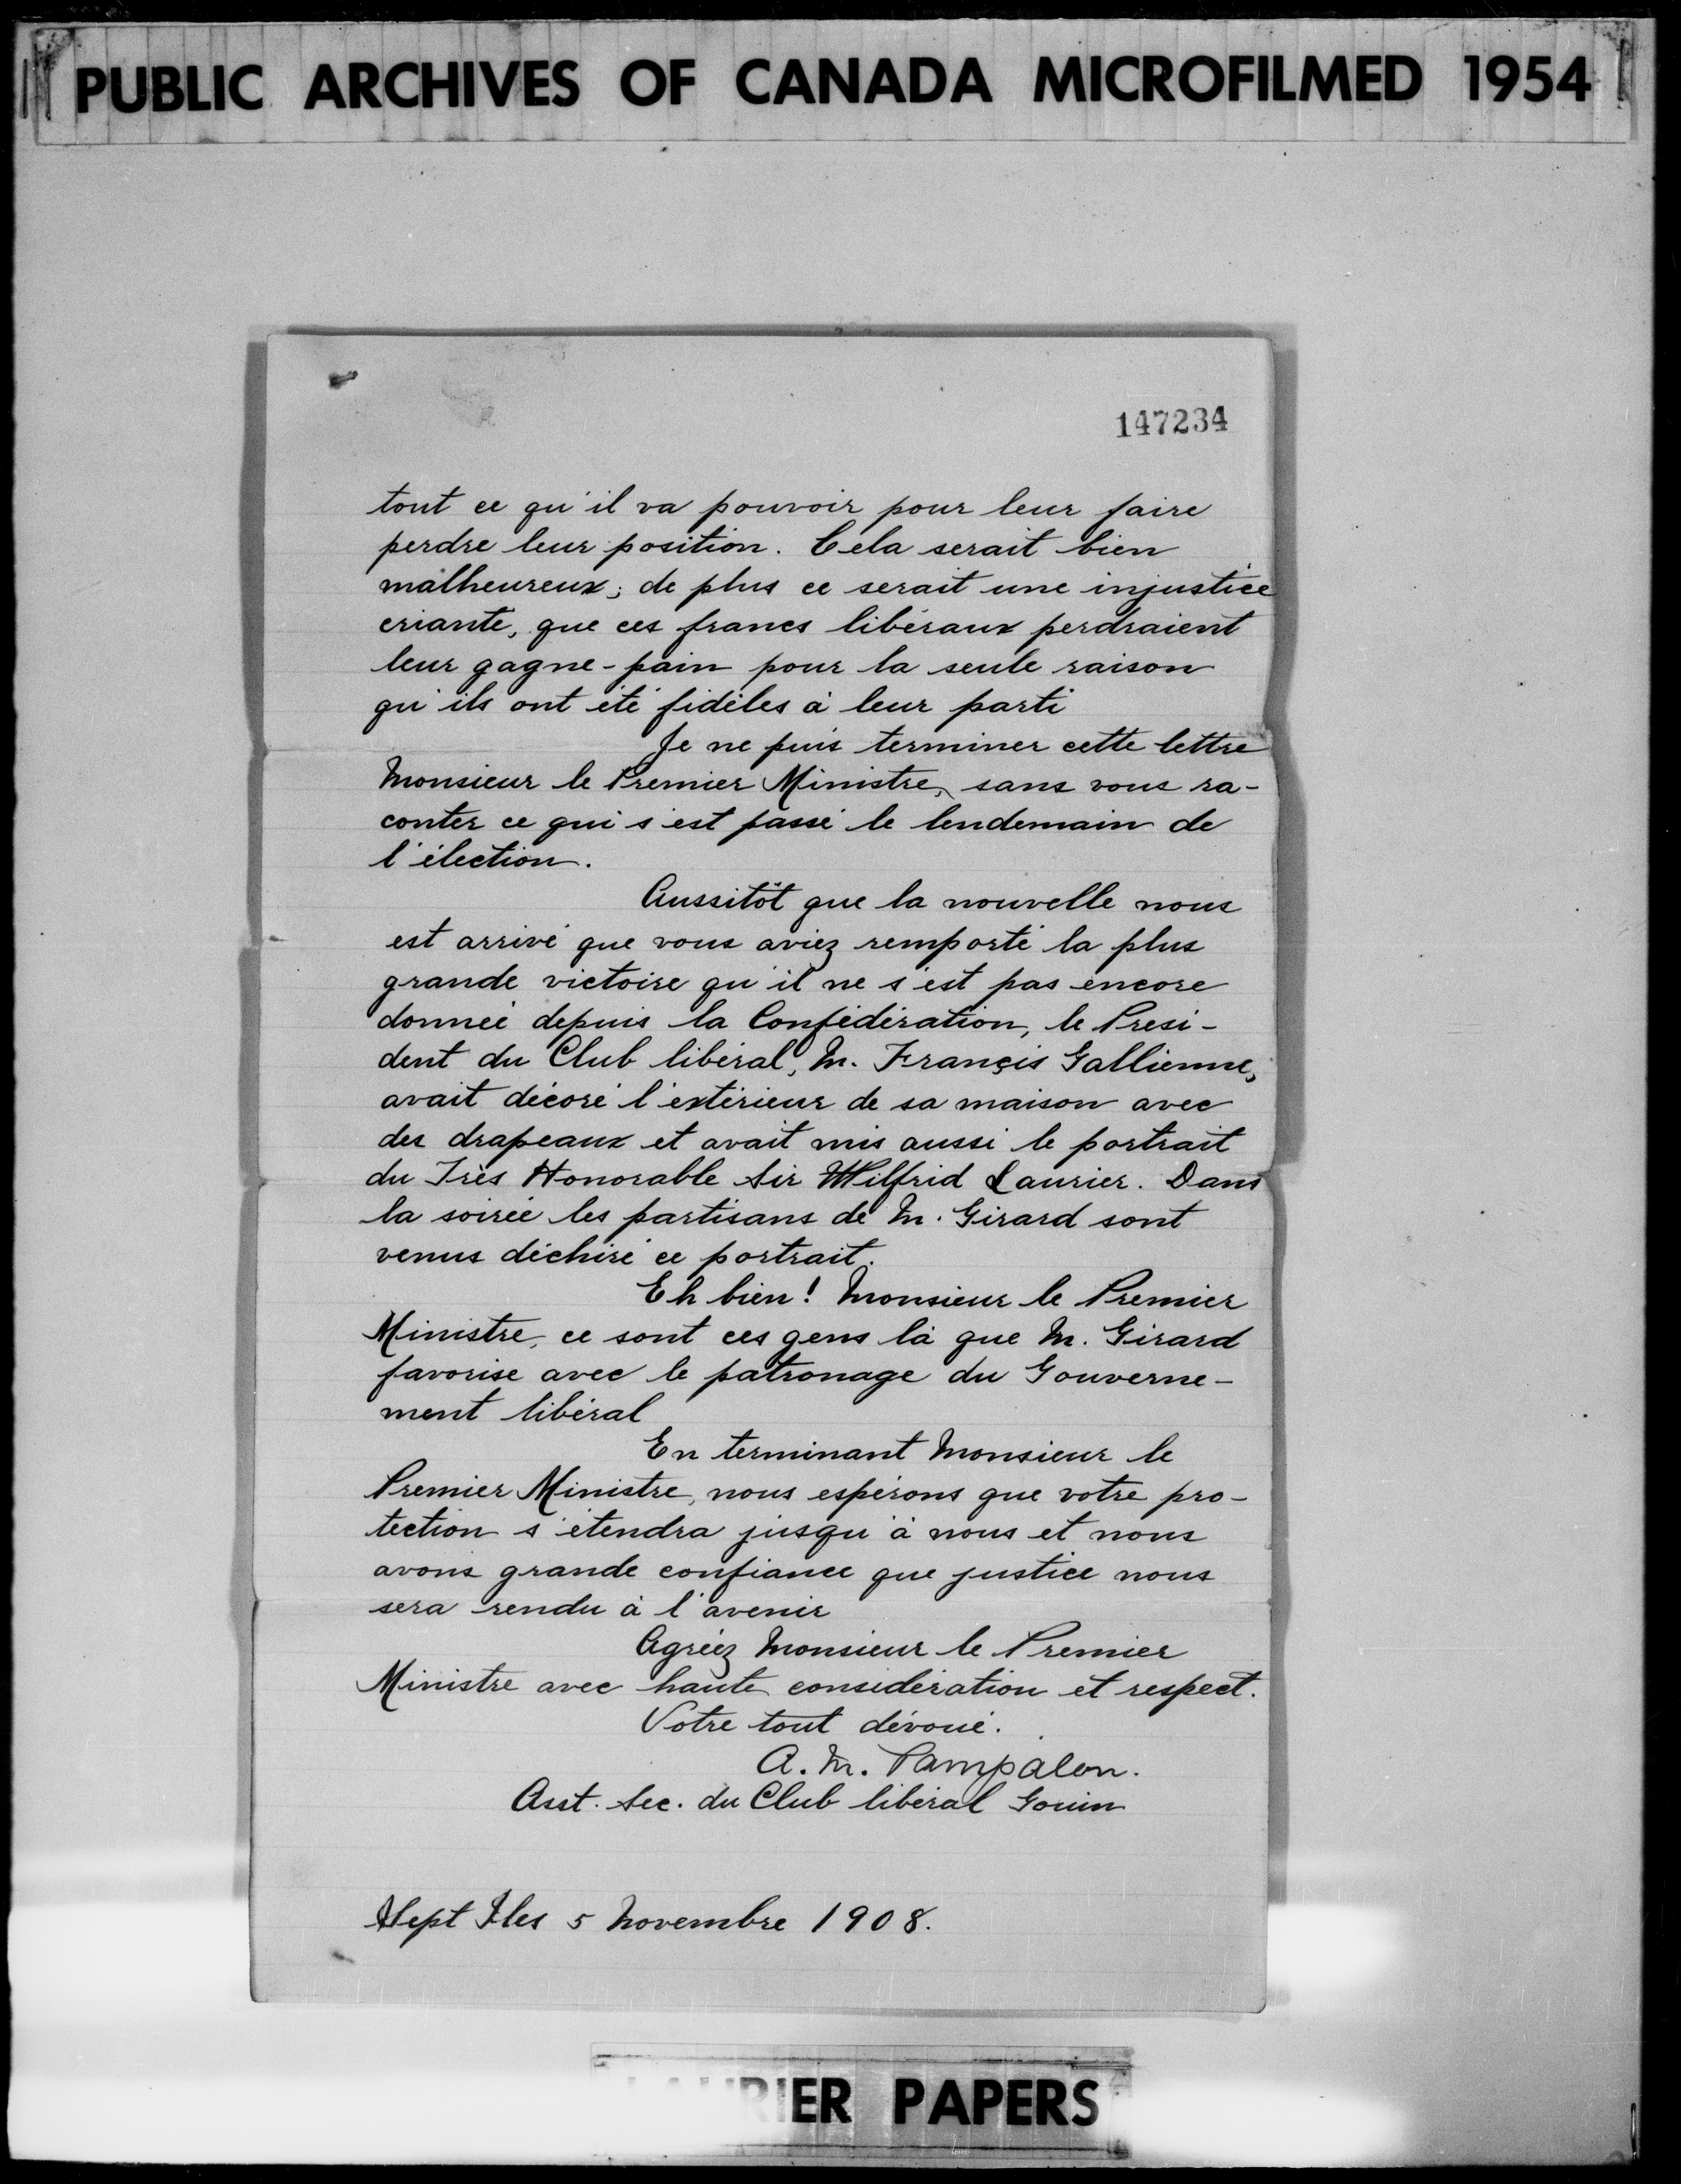 PUBLIC ARCHIVES OF CANADA MICROFILMED 1954
147234
tout ce qu'il va pouvoir pour leur faire
perdre leur position. Cela serait bien
malheureux; de plus ce serait une injustice
criante, que ces francs libéraux perdraient
leur gagne-pain pour la seule raison
qu'ils ont été fidèles à leur parti
Je ne puis terminer cette lettre
Monsieur le Premier Ministre, sans vous ra-
conter ce qui s'est passé le lendemain de
l'élection.
Aussitôt que la nouvelle nous
est arrivé que vous aviez remporté la plus
grande victoire qu'il ne s'est pas encore
donnée depuis la Confédération, le Prési-
dent du Club libéral, M. Françis Gallienne,
avait décoré l'extérieur de sa maison avec
des drapeaux et avait mis aussi le portrait
du Très Honorable Sir Wilfrid Laurier. Dans
la soirée les partisans de M. Girard sont
venus déchiré ce portrait.
Eh bien! Monsieur le Premier
Ministre, ce sont ces gens là que M. Girard
favorise avec le patronage du Gouverne-
ment libéral
En terminant Monsieur le
Premier Ministre, nous espérons que votre pro-
tection s'étendra jusqu'à nous et nous
avons grande confiance que justice nous
sera rendu à l'avenir
Agréez Monsieur le Premier
Ministre avec haute considération et respect.
Votre tout dévoué.
A. M. Pampalon.
Asst. Sec. du Club libéral Gouin
Sept Iles 5 Novembre 1908.
LAURIER PAPERS